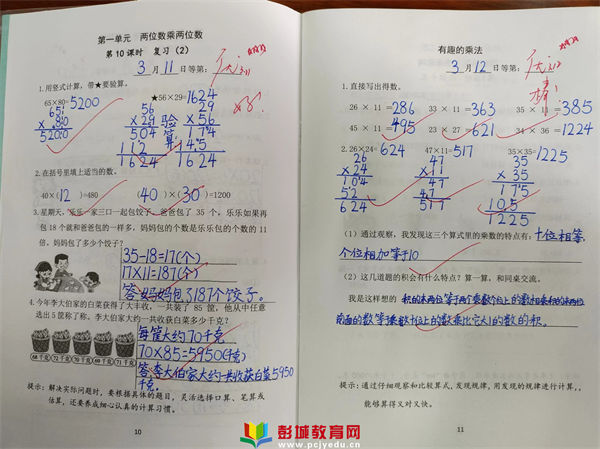 第一单元 两位数乘两位数
第 10 课时 复习(2)
3 月 11 日等第:
1.用竖式计算,带★要验算。
65×80=5200
★56×29=1624
65
× 80
5200
56
× 29
504
112
1624
验算:
29
× 56
174
145
1624
2.在括号里填上适当的数。
40×(12)=480 (40)×(30)=1200
3.星期天,乐乐一家三口一起包饺子。爸爸包了 35 个,乐乐如果再
包 18 个就和爸爸包的一样多,妈妈包的个数是乐乐包的个数的 11
倍。妈妈包了多少个饺子?
35-18=17(个)
17×11=187(个)
答:妈妈包了187个饺子。
4.今年李大伯家的白菜获得了大丰收,一共装了 85 筐,他从中任意
选出 5 筐称了称。李大伯家大约一共收获白菜多少千克?
每筐大约70千克
70×85=5950(千克)
答:李大伯家大约一共收获白菜5950
千克。
68 千克 72 千克 70 千克 69 千克 71 千克
提示:解决实际问题时,要根据具体的题目,灵活选择口算、笔算或
估算,还要养成细心认真的计算习惯。
10
有趣的乘法
3 月 12 日等第:
1.直接写出得数。
26 × 11 =286 33 × 11 =363 35 × 11 =385
45 × 11 =495 23 × 27 =621 34 × 36 =1224
2.26×24=624 47×11=517 35×35=1225
26
× 24
104
52
624
47
× 11
47
47
517
35
× 35
175
105
1225
(1)通过观察,我发现这三个算式里的乘数的特点有:十位相等,
个位相加等于10
(2)这几道题的积会有什么特点?算一算,和同桌交流。
我是这样想的 积的末两位等于两个乘数个位上的数相乘积的末两位
前面的数等于乘数十位上的数乘比它大1的数的积。
提示:通过仔细观察和比较算式,发现规律,用发现的规律进行计算,
能够算得又对又快。
11
彭城教育网
www.pcjyedu.cn